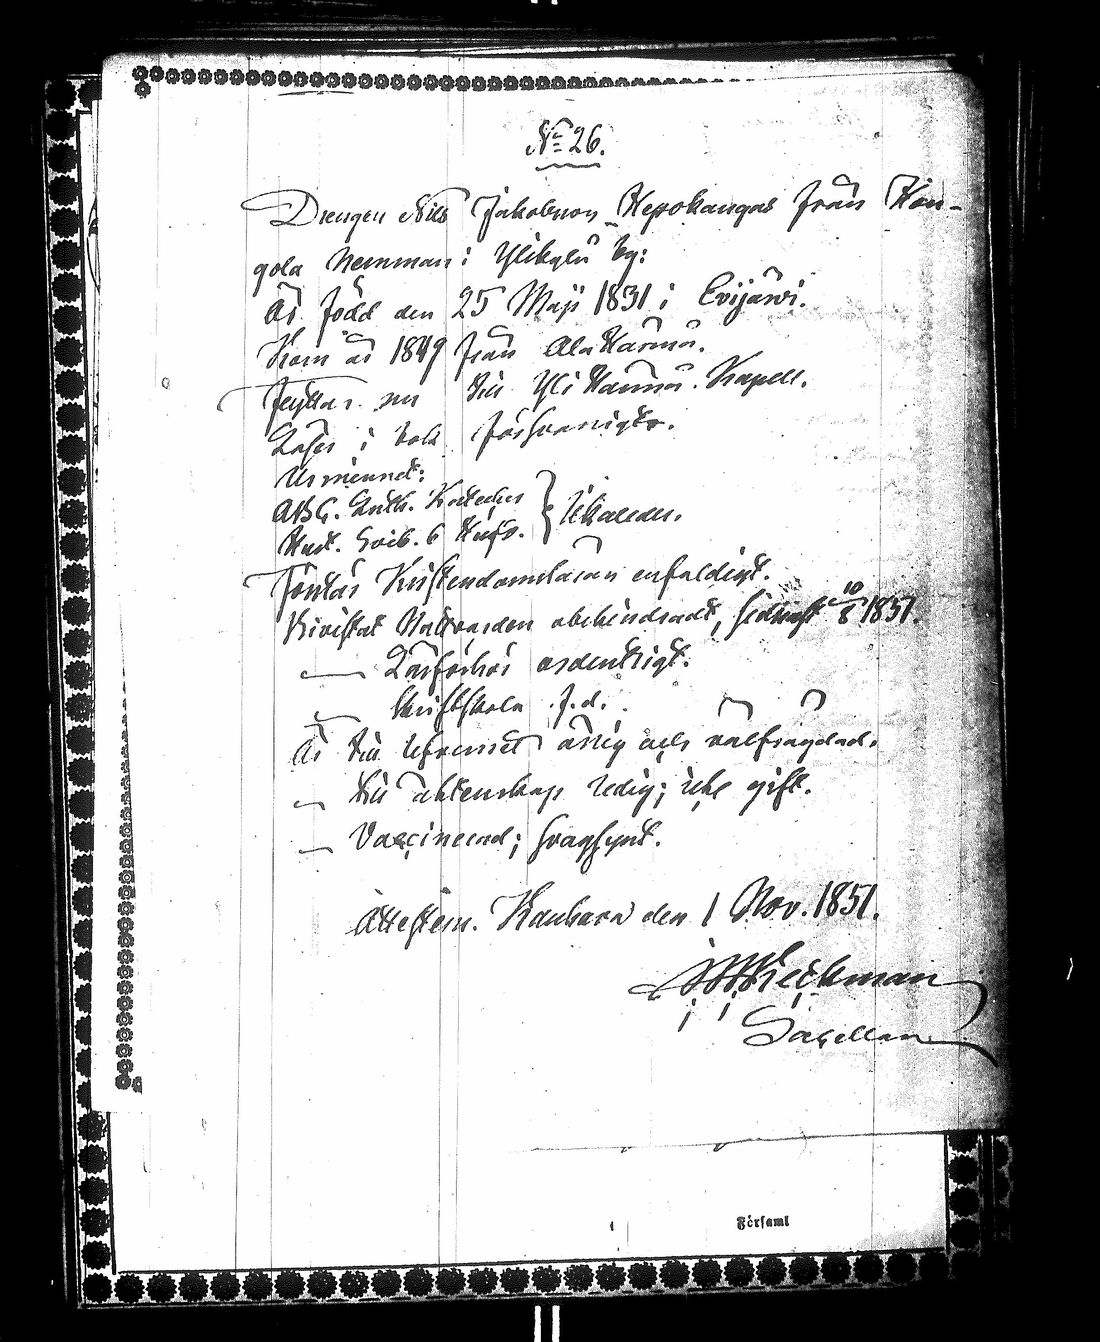 No 26.
Drengen Nils Jakobsson Hepokangas från Kan-
gola Hemman i Ylikylä by:
Är född den 25 Maji 1831 i Evijärvi.
Kom år 1849 från Ala Härmä.
Flyttar nu till Yli Härmä Kapell.
Läser i bok försvarligt.
Ur minnet:
ABC. Luth. Kateches
Hust. Svib. 6 Hufs. } Utan.
Förstår Kristendomsläran enfaldigt.
Bivistat Nattvarden obehindradt, sednast 10/8 1851.
— Läsförhör ordentligt.
— Skriftskola f.d.
Är till lefvernet ärlig och välfrägdad.
— till äktenskap ledig; icke gift.
— Vaccinerad; svagsynt.
Attesteras. Kauhava den 1 Nov. 1851.
Wieckman
Sacellan
Församl